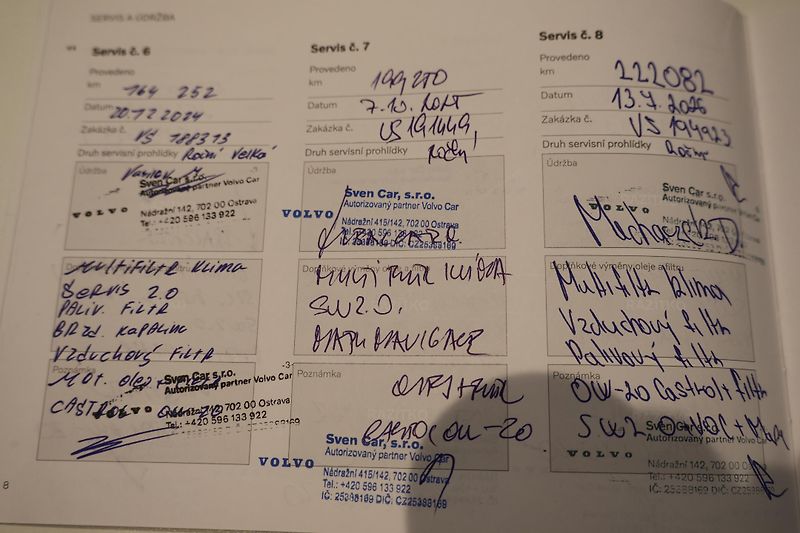 SERVIS A ÚDRŽBA
Servis č. 6
Provedeno
km 164 252
Datum 20.12.2024
Zakázka č. VS 188313
Druh servisní prohlídky Roční velká
Údržba
Sven Car, s.r.o.
Autorizovaný partner Volvo Car
VOLVO
Nádražní 142, 702 00 Ostrava
Tel.: +420 596 133 922
MULTIFILTR KLIMA
SERVIS 2.0
PALIV. FILTR
BRZD. KAPALINA
VZDUCHOVÝ FILTR
Poznámka
MOT. OLEJ
Sven Car, s.r.o.
Autorizovaný partner Volvo Car
VOLVO
Nádražní 142, 702 00 Ostrava
Tel.: +420 596 133 922
8
Servis č. 7
Provedeno
km 199270
Datum 7.10.
Zakázka č. VS 191449
Druh servisní prohlídky Roční
Údržba
Sven Car, s.r.o.
Autorizovaný partner Volvo Car
VOLVO
Nádražní 415/142, 702 00 Ostrava
Tel.: +420 596 133 922
IČ: 25388169 DIČ: CZ25388169
Doplňkové výměny oleje a filtru
MULTIFILTR KLIMA
SW 2.0.
MAPY NAVIGACE
-3-
Poznámka
OLEJ + FILTR
0W-20
Sven Car, s.r.o.
Autorizovaný partner Volvo Car
VOLVO
Nádražní 415/142, 702 00 Ostrava
Tel.: +420 596 133 922
IČ: 25388169 DIČ: CZ25388169
Servis č. 8
Provedeno
km 222082
Datum 13.7.2026
Zakázka č. VS 194923
Druh servisní prohlídky Roční
Údržba
Sven Car, s.r.o.
Autorizovaný partner Volvo Car
VOLVO
Nádražní 142, 702 00 Ostrava
Tel.: +420 596 133 922
Doplňkové výměny oleje a filtru
Multifiltr klima
Vzduchový filtr
Palivový filtr
Poznámka
0W-20 Castrol + filtr
SW2.0
Sven Car, s.r.o.
Autorizovaný partner Volvo Car
VOLVO
Nádražní 142, 702 00 Ostrava
Tel.: +420 596 133 922
IČ: 25388169 DIČ: CZ25388169